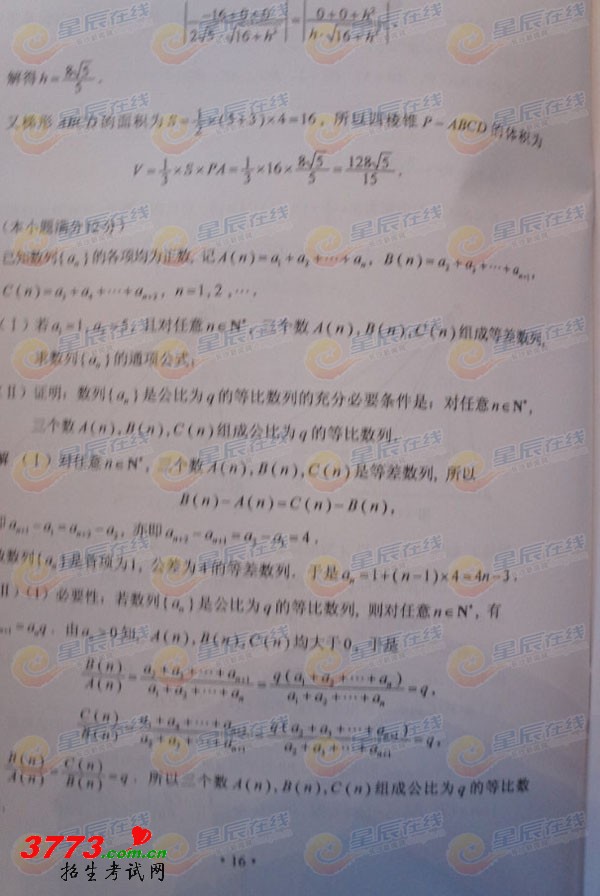 |(-16+0+0)/(2√5·√(16+h²))| = |(0+0+h²)/(h·√(16+h²))|,
解得h=8√5/5.
又梯形ABCD的面积为S=1/2×(5+3)×4=16, 所以四棱锥P-ABCD的体积为
V=1/3×S×PA=1/3×16×8√5/5=128√5/15.
(本小题满分12分)
已知数列{aₙ}的各项均为正数, 记A(n)=a₁+a₂+⋯+aₙ, B(n)=a₂+a₃+⋯+aₙ₊₁,
C(n)=a₃+a₄+⋯+aₙ₊₂, n=1,2,⋯.
(Ⅰ)若a₁=1,a₂=5, 且对任意n∈N*, 三个数A(n),B(n),C(n)组成等差数列,
求数列{aₙ}的通项公式;
(Ⅱ)证明: 数列{aₙ}是公比为q的等比数列的充分必要条件是: 对任意n∈N*,
三个数A(n),B(n),C(n)组成公比为q的等比数列.
解 (Ⅰ)对任意n∈N*, 三个数A(n),B(n),C(n)是等差数列, 所以
B(n)-A(n)=C(n)-B(n),
即aₙ₊₁-a₁=aₙ₊₂-a₂, 亦即aₙ₊₂-aₙ₊₁=a₂-a₁=4.
故数列{aₙ}是首项为1, 公差为4的等差数列. 于是aₙ=1+(n-1)×4=4n-3.
(Ⅱ)(1)必要性: 若数列{aₙ}是公比为q的等比数列, 则对任意n∈N*, 有
aₙ₊₁=aₙq. 由aₙ>0知, A(n),B(n),C(n)均大于0, 于是
B(n)/A(n)=(a₂+a₃+⋯+aₙ₊₁)/(a₁+a₂+⋯+aₙ)=q(a₁+a₂+⋯+aₙ)/(a₁+a₂+⋯+aₙ)=q,
C(n)/B(n)=(a₃+a₄+⋯+aₙ₊₂)/(a₂+a₃+⋯+aₙ₊₁)=q(a₂+a₃+⋯+aₙ₊₁)/(a₂+a₃+⋯+aₙ₊₁)=q,
B(n)/A(n)=C(n)/B(n)=q. 所以三个数A(n),B(n),C(n)组成公比为q的等比数
·16·
3773.com.cn
招生考试网
星辰在线